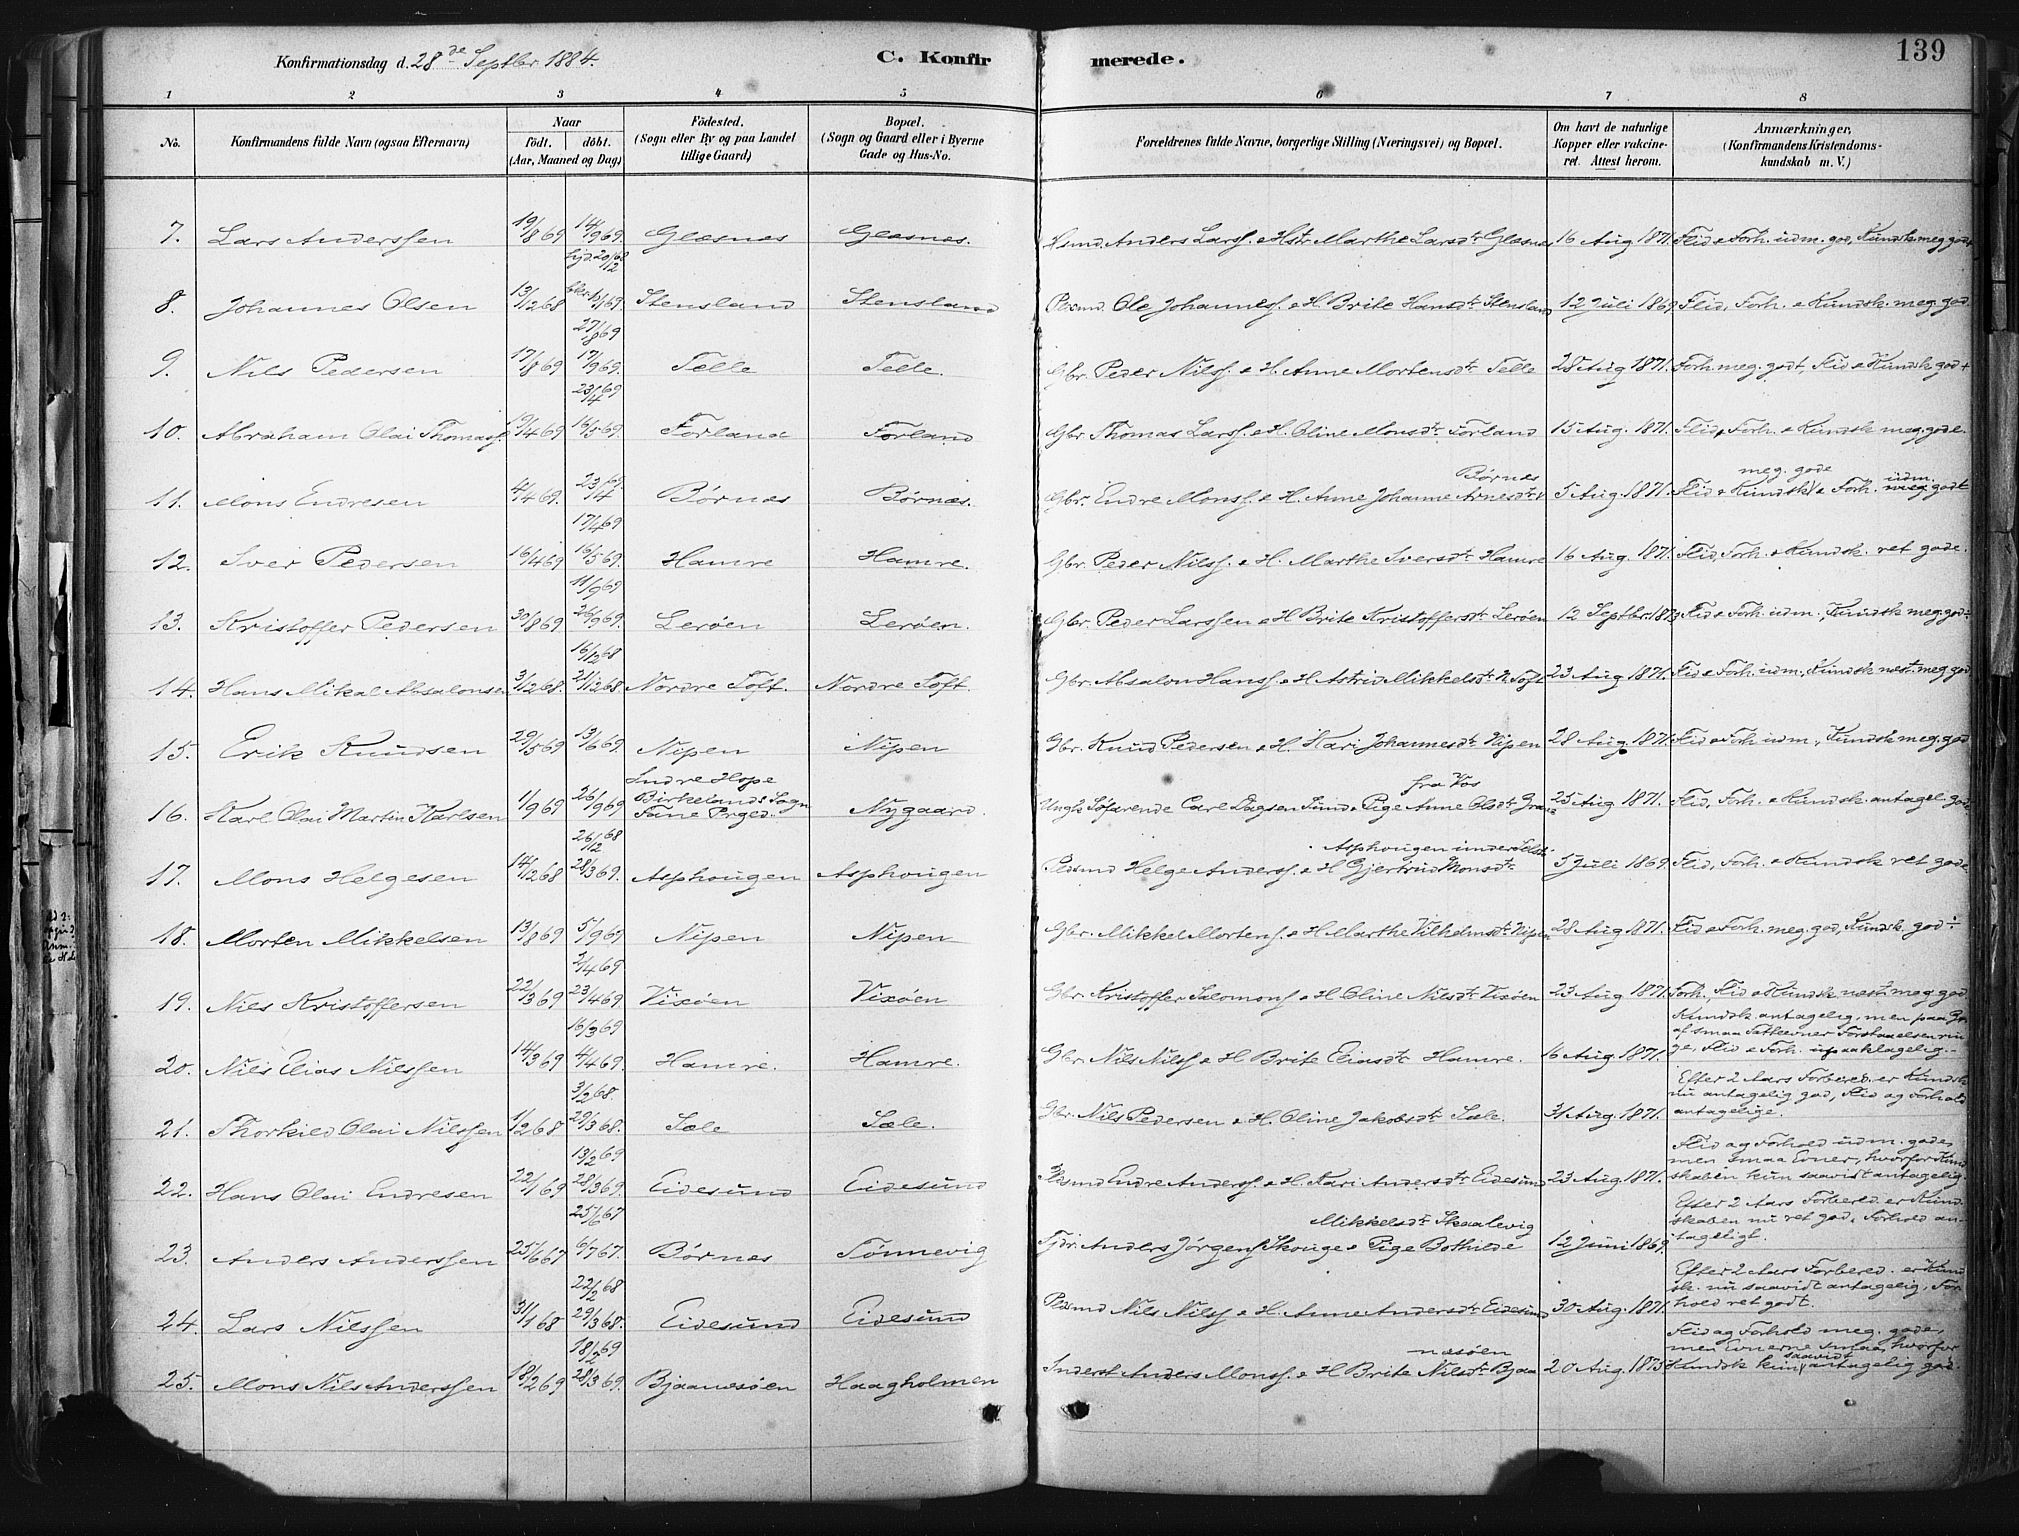 Konfirmationsdag d. 28de Septbr 1884.
C. Konfirmerede.
139
1 2 3 4 5 6 7 8
No.
Konfirmandens fulde Navn (ogsaa Efternavn)
Naar
födt. döbt.
(Aar, Maaned og Dag)
Födested.
(Sogn eller By og paa Landet
tillige Gaard)
Bopæl.
(Sogn og Gaard eller i Byerne
Gade og Hus-No.
Forældrenes fulde Navne, borgerlige Stilling (Næringsvei) og Bopæl.
Om havt de naturlige
Kopper eller vakcine-
ret. Attest herom.
Anmærkninger,
(Konfirmandens Kristendoms-
kundskab m. V.)
7. Lars Anderssen 19/8 69 14/9 69. Glæsnes Glæsnes. Hsmd. Anders Larss. & Hstr Marthe Larsdtr Glæsnes 16 Aug 1871. Flid & Forh. udm. god, Kundsk meg god
8. Johannes Olsen 13/12 68 hjd. 20/12 68 10/1 69. Stensland Stensland Plsmd. Ole Johanness. & H. Brite Hansdtr Stensland 12 Juli 1869 Flid, Forh. & Kundsk. meg. god.
9. Nils Pedersen 17/8 69 27/8 69 17/9 69. Telle Telle. Gbr. Peder Nilss. & H. Anne Mortensdtr Telle 28 Aug 1871. Forh. meg. godt, Flid & Kundsk god+
10. Abraham Olai Thomass. 19/4 69 23/4 69 16/5 69. Forland Forland Gbr Thomas Larss. & H. Oline Monsdtr. Forland 15 Aug. 1871. Flid, Forh. & Kundsk meg. gode.
11. Mons Endresen 4/4 69. 23/4 69. Børnes Børnæs. Gbr. Endre Monss. & H. Anne Johanne Arnesdtr Børnes 5 Aug. 1871. Flid & Kundsk meg. gode & Forh. udm. godt
12. Iver Pedersen 16/4 69 17/4 69 16/5 69. Hamre Hamre. Gbr. Peder Nilss. & H. Marthe Iversdtr Hamre 16 Aug. 1871. Flid, Forh. & Kundsk. ret gode.
13. Kristoffer Pedersen 30/8 69 11/9 69 26/9 69. Lerøen Lerøen. Gbr. Peder Larssen & H Brite Kristoffersdtr Lerøen 12 Septbr. 1873 Flid & Forh. udm., Kundsk meg. god÷
14. Hans Mikal Absalonsen 3/12 68. 16/12 68 21/12 68 Nordre Toft. Nordre Toft. Gbr. Absalon Hanss. & H. Astrid Mikkelsdtr N. Toft 23 Aug. 1871. Flid & Forh. udm., Kundsk næst meg. god
15. Erik Knudsen 29/5 69 13/6 69. Nipen Nipen Gbr. Knud Pedersen & H. Kari Johannesdtr Nipen 28 Aug. 1871. Flid & Forh udm., Kundsk meg. god
16. Karl Olai Martin Karlsen 1/9 69 26/9 69 Indre Hope
Birkelands Sogn
Fane Prgld. Nygaard. Ungk. Søfarende Carl Dagsen Sund & Pige Anne Olsdtr Graue fra Vos 25 Aug. 1871. Flid, Forh. & Kundsk. antagel. gode
17. Mons Helgesen 14/12 68 26/12 68 28/3 69. Asphougen Asphougen Pldsmd Helge Anderss. & H Gjertrud Monsdtr Asphougen under 5 Juli 1869. Flid, Forh. & Kundsk ret gode
18. Morten Mikkelsen 13/8 69 5/9 69 Nipen Nipen Gbr. Mikkel Mortens. & H Marthe Vilhelmsdtr Nipen 28 Aug 1871. Flid & Forh. meg. god, Kundsk. god ÷
19. Nils Kristoffersen 22/3 69 2/4 69 23/4 69. Vixøen Vixøen Gbr. Kristoffer Salomons. & H Oline Nilsdtr Vixøen 23 Aug 1871. Forh., Flid & Kundsk næst meg. god
20. Nils Elias Nilssen 14/3 69 16/3 69 4/4 69. Hamre. Hamre. Gbr. Nils Nilss. & H Brite Eliasdtr Hamre. 16 Aug. 1871. Kundsk. antagelig, men paa Gr.
af smaa Sjælevner Forstaaelsen rin-
ge, Flid & Forh. upaaklagelig.-
21. Thorkild Olai Nilssen 1/2 68 3/2 68. 29/3 68. Sæle Sæle. Gbr. Nils Pedersen & H. Oline Jakobsdtr Sæle. 31 Aug. 1871. Efter 2 Aars Forbered. er Kundsk
nu antagelig god, Flid og Forhold
antagelige.
22. Hans Olai Endresen 22/1 69 13/2 69 28/3 69. Eidesund Eidesund Pldsmd Endre Anderss. & H. Kari Andersdtr Eidesund 23 Aug. 1871. Flid og Forhold udm. gode,
men smaa Evner, hvorfor Kund
skaben kun saavidt antagelig.
23. Anders Anderssen 25/6 67 25/6 67 6/7 67. Børnes Tønnevig Tjdr. Anders Jörgens. Skouge & Pige Bothilde Mikkelsdtr Skaalevig 12 Juni 1869. Efter 2 Aars Forbered. er Kund-
skaben nu ret god, Forhold an-
tageligt.
24. Lars Nilssen 31/1 68 22/2 68 29/3 68. Eidesund Eidesund Pldsmd Nils Nilss. & H. Anne Andersdtr Eidesund 30 Aug. 1871. Efter 2 Aars Forbered. er Kund
sk. nu saavidt antagelig, For-
hold ret godt.
25. Mons Nils Anderssen 18/2 69 18/2 69 28/3 69. Bjaanesøen Haagholmen Inderst Anders Monss. & H Brite Nilsdtr Bjaa næsøen 20 Aug. 1873 Flid og Forhold meg. gode,
men Evnerne smaa, hvorfor
Kundsk kun saavidt antagelig god